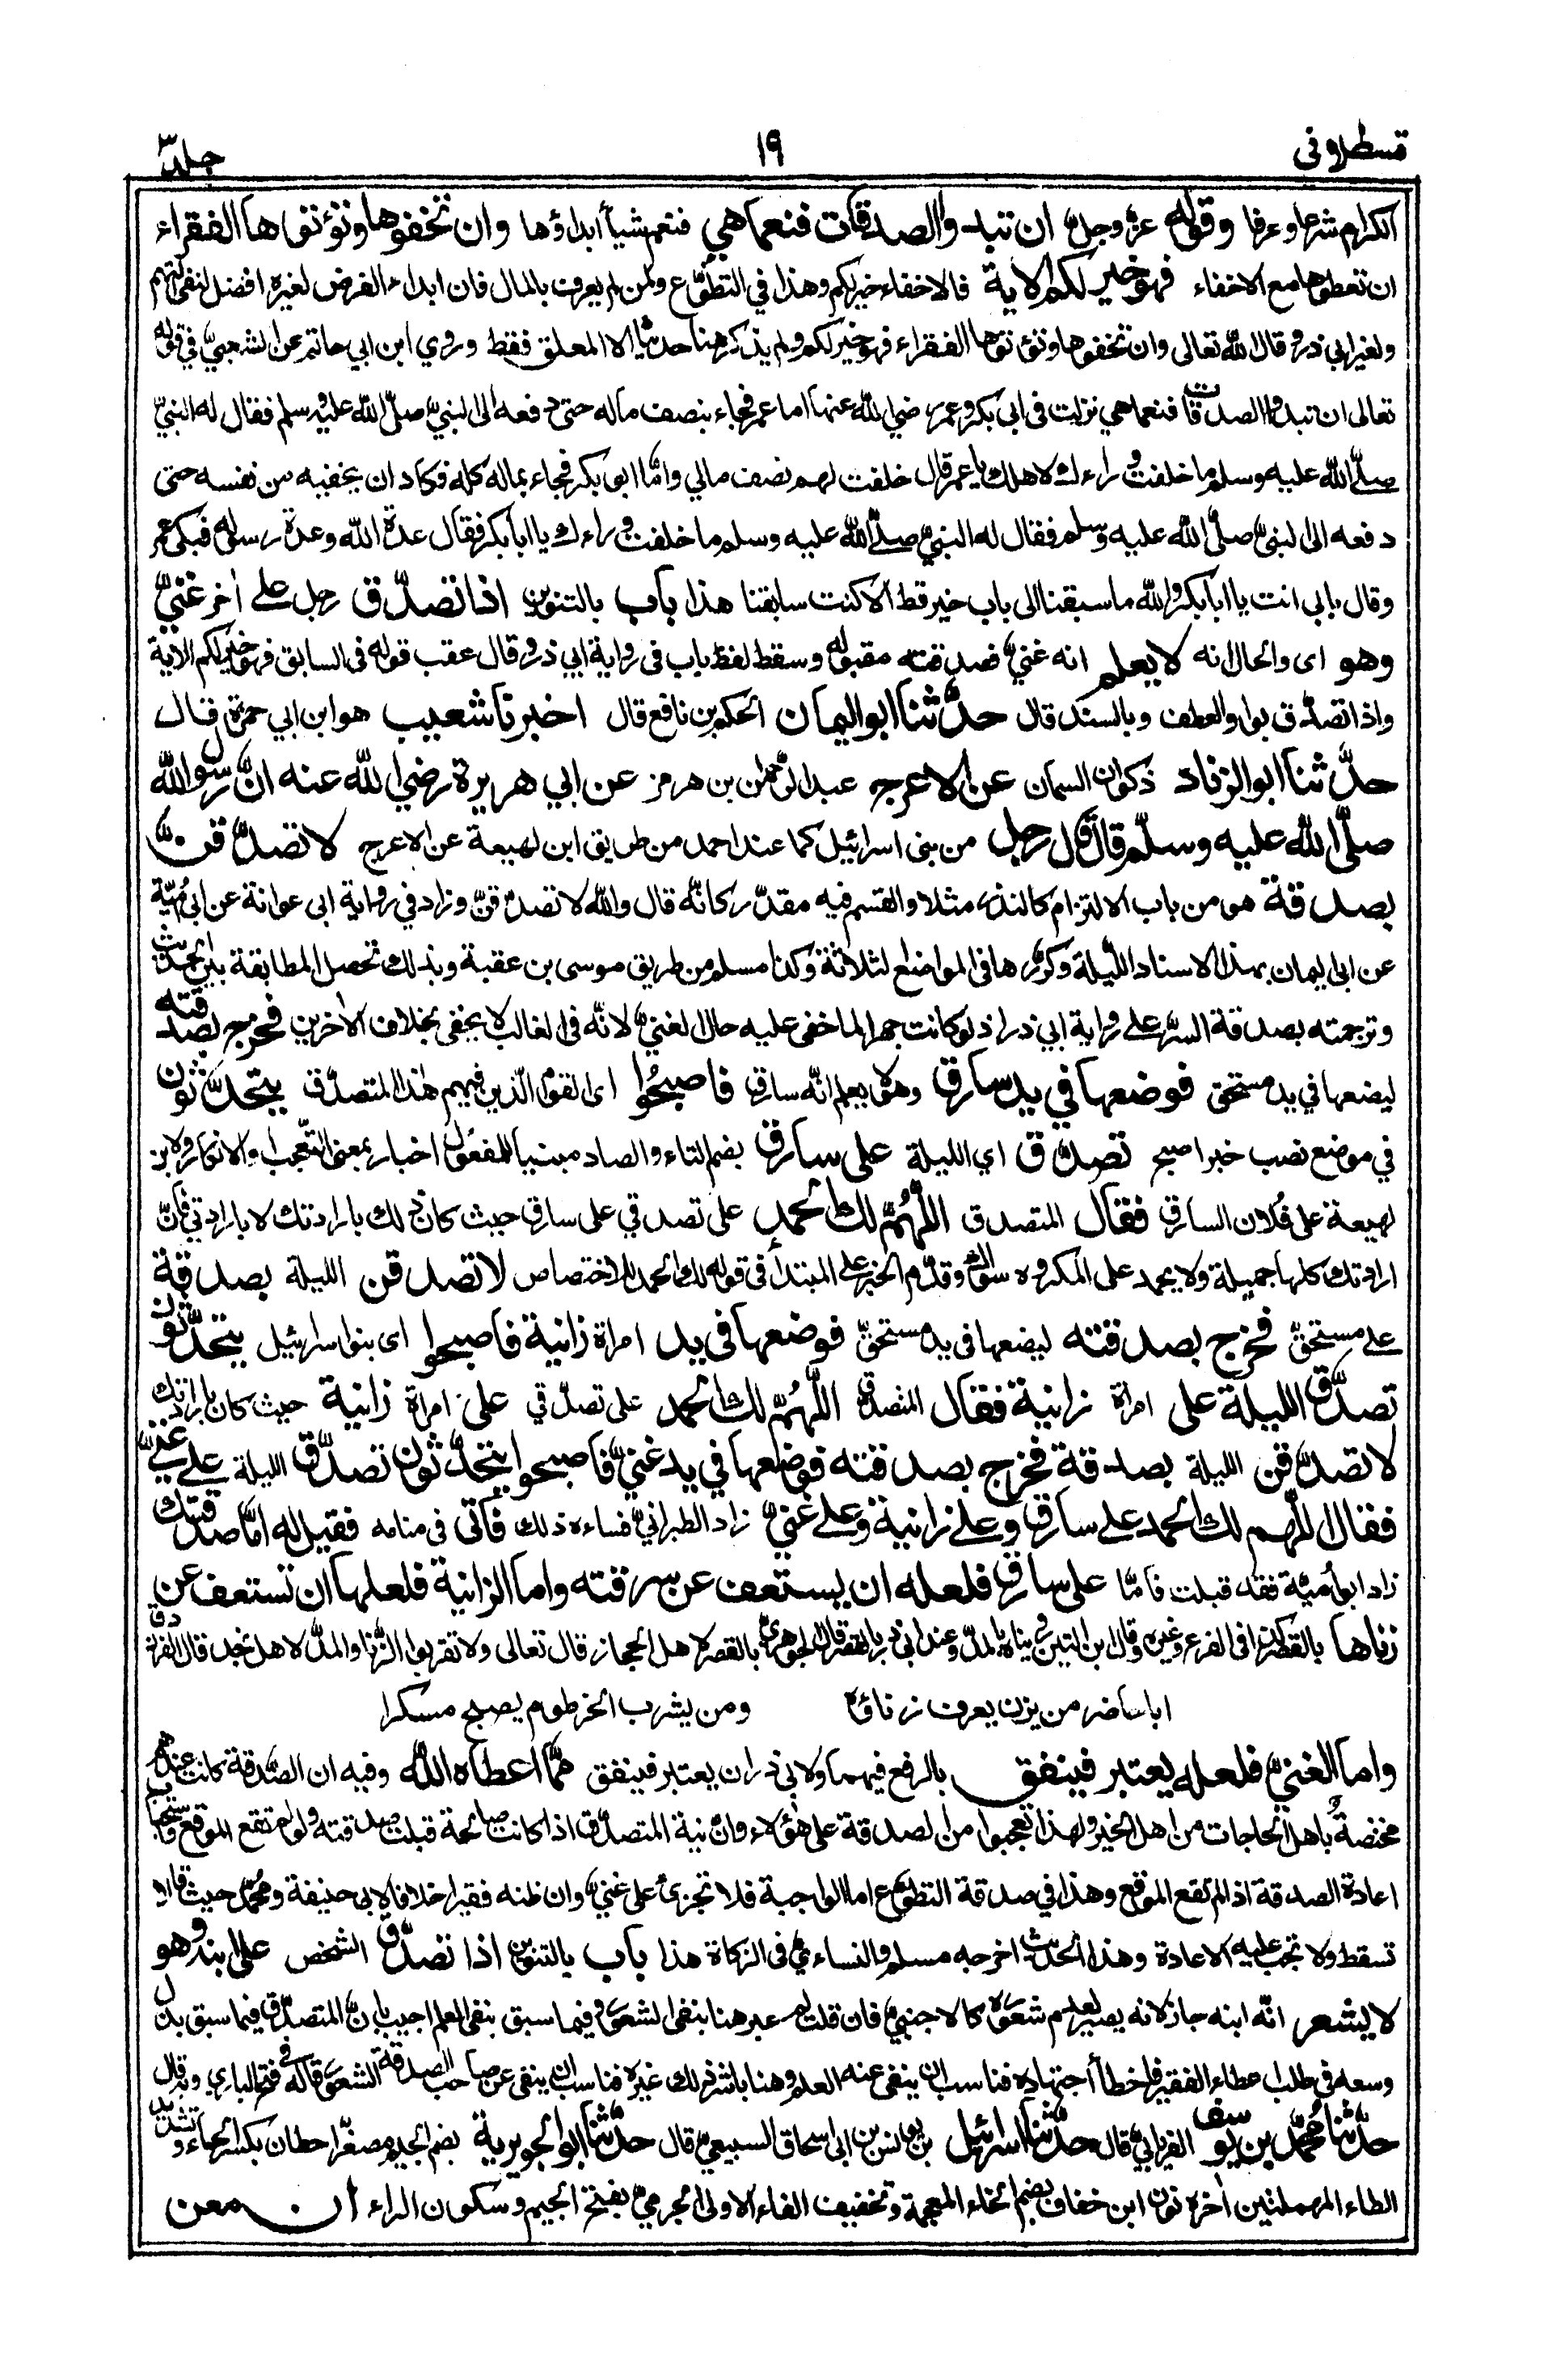 قسطلانی ١٩ جلد ٣
الكرام شرعا وعرفا وقوله عزّ وجلّ ان تبدوا الصدقات فنعما هي فنعم شيأ ابداؤها وان تخفوها وتؤتوها الفقراء
ان تعطوها مع الاخفاء فهو خير لكم الاية فالاخفاء خير لكم وهذا في التطوّع ولمن لم يعرف بالمال فان ابداء الفرض لغيره افضل لنفي التهم
ولغير ابي ذر وقال الله تعالى وان تخفوها وتؤتوها الفقراء فهو خير لكم ولم يذكر هنا حديثا الا المعلق فقط وروي ابن ابي حاتم عن الشعبيّ في قوله
تعالى ان تبدوا الصدقات فنعما هي نزلت في ابي بكر وعمر رضي الله عنهما اما عمر فجاء بنصف ماله حتى دفعه الى النبيّ صلّى الله عليه وسلم فقال له النبيّ
صلّى الله عليه وسلم ما خلفت وراءك لاهلك يا عمر قال خلفت لهم نصف مالي وامّا ابو بكر فجاء بماله كله فكاد ان يخفيه من نفسه حتى
دفعه الى النبيّ صلّى الله عليه وسلم فقال له النبيّ صلّى الله عليه وسلم ما خلفت وراءك يا ابا بكر فقال عدة الله وعدة رسوله فبكى عمر
وقال بابي انت يا ابا بكر والله ما سبقنا الى باب خير قط الا كنت سابقنا هذا باب بالتنوين اذا تصدّق رجل على اخر غنيّ
وهو اى والحال انه لا يعلم انه غنيّ فصدقته مقبولة وسقط لفظ باب في رواية ابي ذر وقال عقب قوله في السابق فهو خير لكم الاية
واذا تصدّق بواو العطف وبالسند قال حدّثنا ابو اليمان الحكم بن نافع قال اخبرنا شعيب هو ابن ابي حمزة قال
حدّثنا ابو الزناد ذكوان السمان عن الاعرج عبد الرحمٰن بن هرمز عن ابي هريرة رضي الله عنه انّ رسول الله
صلّى الله عليه وسلّم قال قال رجل من بنى اسرائيل كما عند احمد من طريق ابن لهيعة عن الاعرج لاتصدّقنّ
بصدقة هو من باب الالتزام كالنذر مثلا والقسم فيه مقدّر كانّه قال والله لاتصدّقنّ وزاد في رواية ابى عوانة عن ابي اميّة
عن ابي اليمان بهذا الاسناد الليلة وكرّرها في المواضع الثلاثة وكذا مسلم من طريق موسى بن عقبة وبذلك تحصل المطابقة بين الحديث
وترجمته بصدقة السرّ على رواية ابي ذر اذ لو كانت جهرا لما خفى عليه حال الغنيّ لانّه في الغالب لا يخفى بخلاف الاخرين فخرج بصدقته
ليضعها في يد مستحق فوضعها في يد سارق وهو لا يعلم انّه سارق فاصبحُوا اى القوم الّذين فيهم هٰذا المتصدّق يتحدّثون
في موضع نصب خبر اصبح تصدّق اي الليلة على سارق بضم التاء والصاد مبنيا للمفعول اخبار بمعنى التعجب والانكار ولابن
لهيعة على فلان السارق فقال المتصدق اللّهُمّ لك الحمد على تصدقي على سارق حيث كان ذلك بارادتك لا بارادتي فانّ
ارادتك كلها جميلة ولا يحمد على المكروه سواك وقدّم الخبر على المبتدأ في قوله لك الحمد للاختصاص لاتصدقن الليلة بصدقة
على مستحقّ فخرج بصدقته ليضعها في يد مستحقّ فوضعها في يد امراة زانية فاصبحوا اى بنو اسرائيل يتحدّثون
تصدّق الليلة على امراة زانية فقال المتصدق اللّهُمّ لك الحمد على تصدّقي على امراة زانية حيث كان بارادتك
لاتصدّقن الليلة بصدقة فخرج بصدقته فوضعها في يد غنيّ فاصبحوا يتحدّثون تصدّق الليلة على غنيّ
فقال اللّهم لك الحمد على سارق وعلى زانية وعلى غنيّ زاد الطبرانيّ فساءه ذلك فاُتى في منامه فقيل له امّا صدقتك
زاد ابو اُميّة فقد قبلت فامّا على سارق فلعله ان يستعف عن سرقته واما الزانية فلعلها ان تستعف عن
زناها بالقصر كذا في الفرع وغيره وقال ابن التين رويناه بالمدّ وعند ابي ذر بالقصر قال الجوهريّ بالقصر لاهل الحجاز قال تعالى ولا تقربوا الزنا والمدّ لاهل نجد قال الفرزدق
ابا حاضر من يزن يعرف زناؤه ومن يشرب الخرطوم يصبح مسكرا
واما الغنيّ فلعله يعتبر فينفق بالرفع فيهما ولابي ذر ان يعتبر فينفق ممّا اعطاه الله وفيه ان الصّدقة كانت عندهم
مختصةً باهل الحاجات من اهل الخير ولهذا تعجبوا من الصدقة على هٰؤلاء وانّ نية المتصدّق اذا كانت صالحة قبلت صدقته ولو لم تقع الموقع واستحباب
اعادة الصدقة اذا لم تقع الموقع وهذا في صدقة التطوّع اما الواجبة فلا تجزئ على غنيّ وان ظنه فقيرا خلافا لابي حنيفة ومحمّد حيث قالا
تسقط ولا تجب عليه الاعادة وهذا الحديث اخرجه مسلم والنساءي في الزكاة هذا باب بالتنوين اذا تصدّق الشخص على ابنه وهو
لا يشعر انّه ابنه جاز لانه يصير لعدم شعوره كالاجنبيّ فان قلت لم عبر هنا بنفى الشعور وفيما سبق بنفى العلم اجيب بانّ المتصدّق فيما سبق بذل
وسعه في طلب اعطاء الفقير فاخطأ اجتهاده فناسب ان ينفى عنه العلم وهنا باشر ذلك غيره فناسب ان ينفى عن صاحب الصدقة الشعور قاله في فتح الباري وبه قال
حدّثنا محمّد بن يوسف الفريابيّ قال حدّثنا اسرائيل بن يونس بن ابى اسحاق السبيعيّ قال حدّثنا ابو الجويرية بضم الجيم مصغّرا حطان بكسر الحاء وتشديد
الطاء المهملتين اٰخره نون ابن خفاف بضم الخاء المعجمة وتخفيف الفاء الاولى الجرميّ بفتح الجيم وسكون الراء ان معن